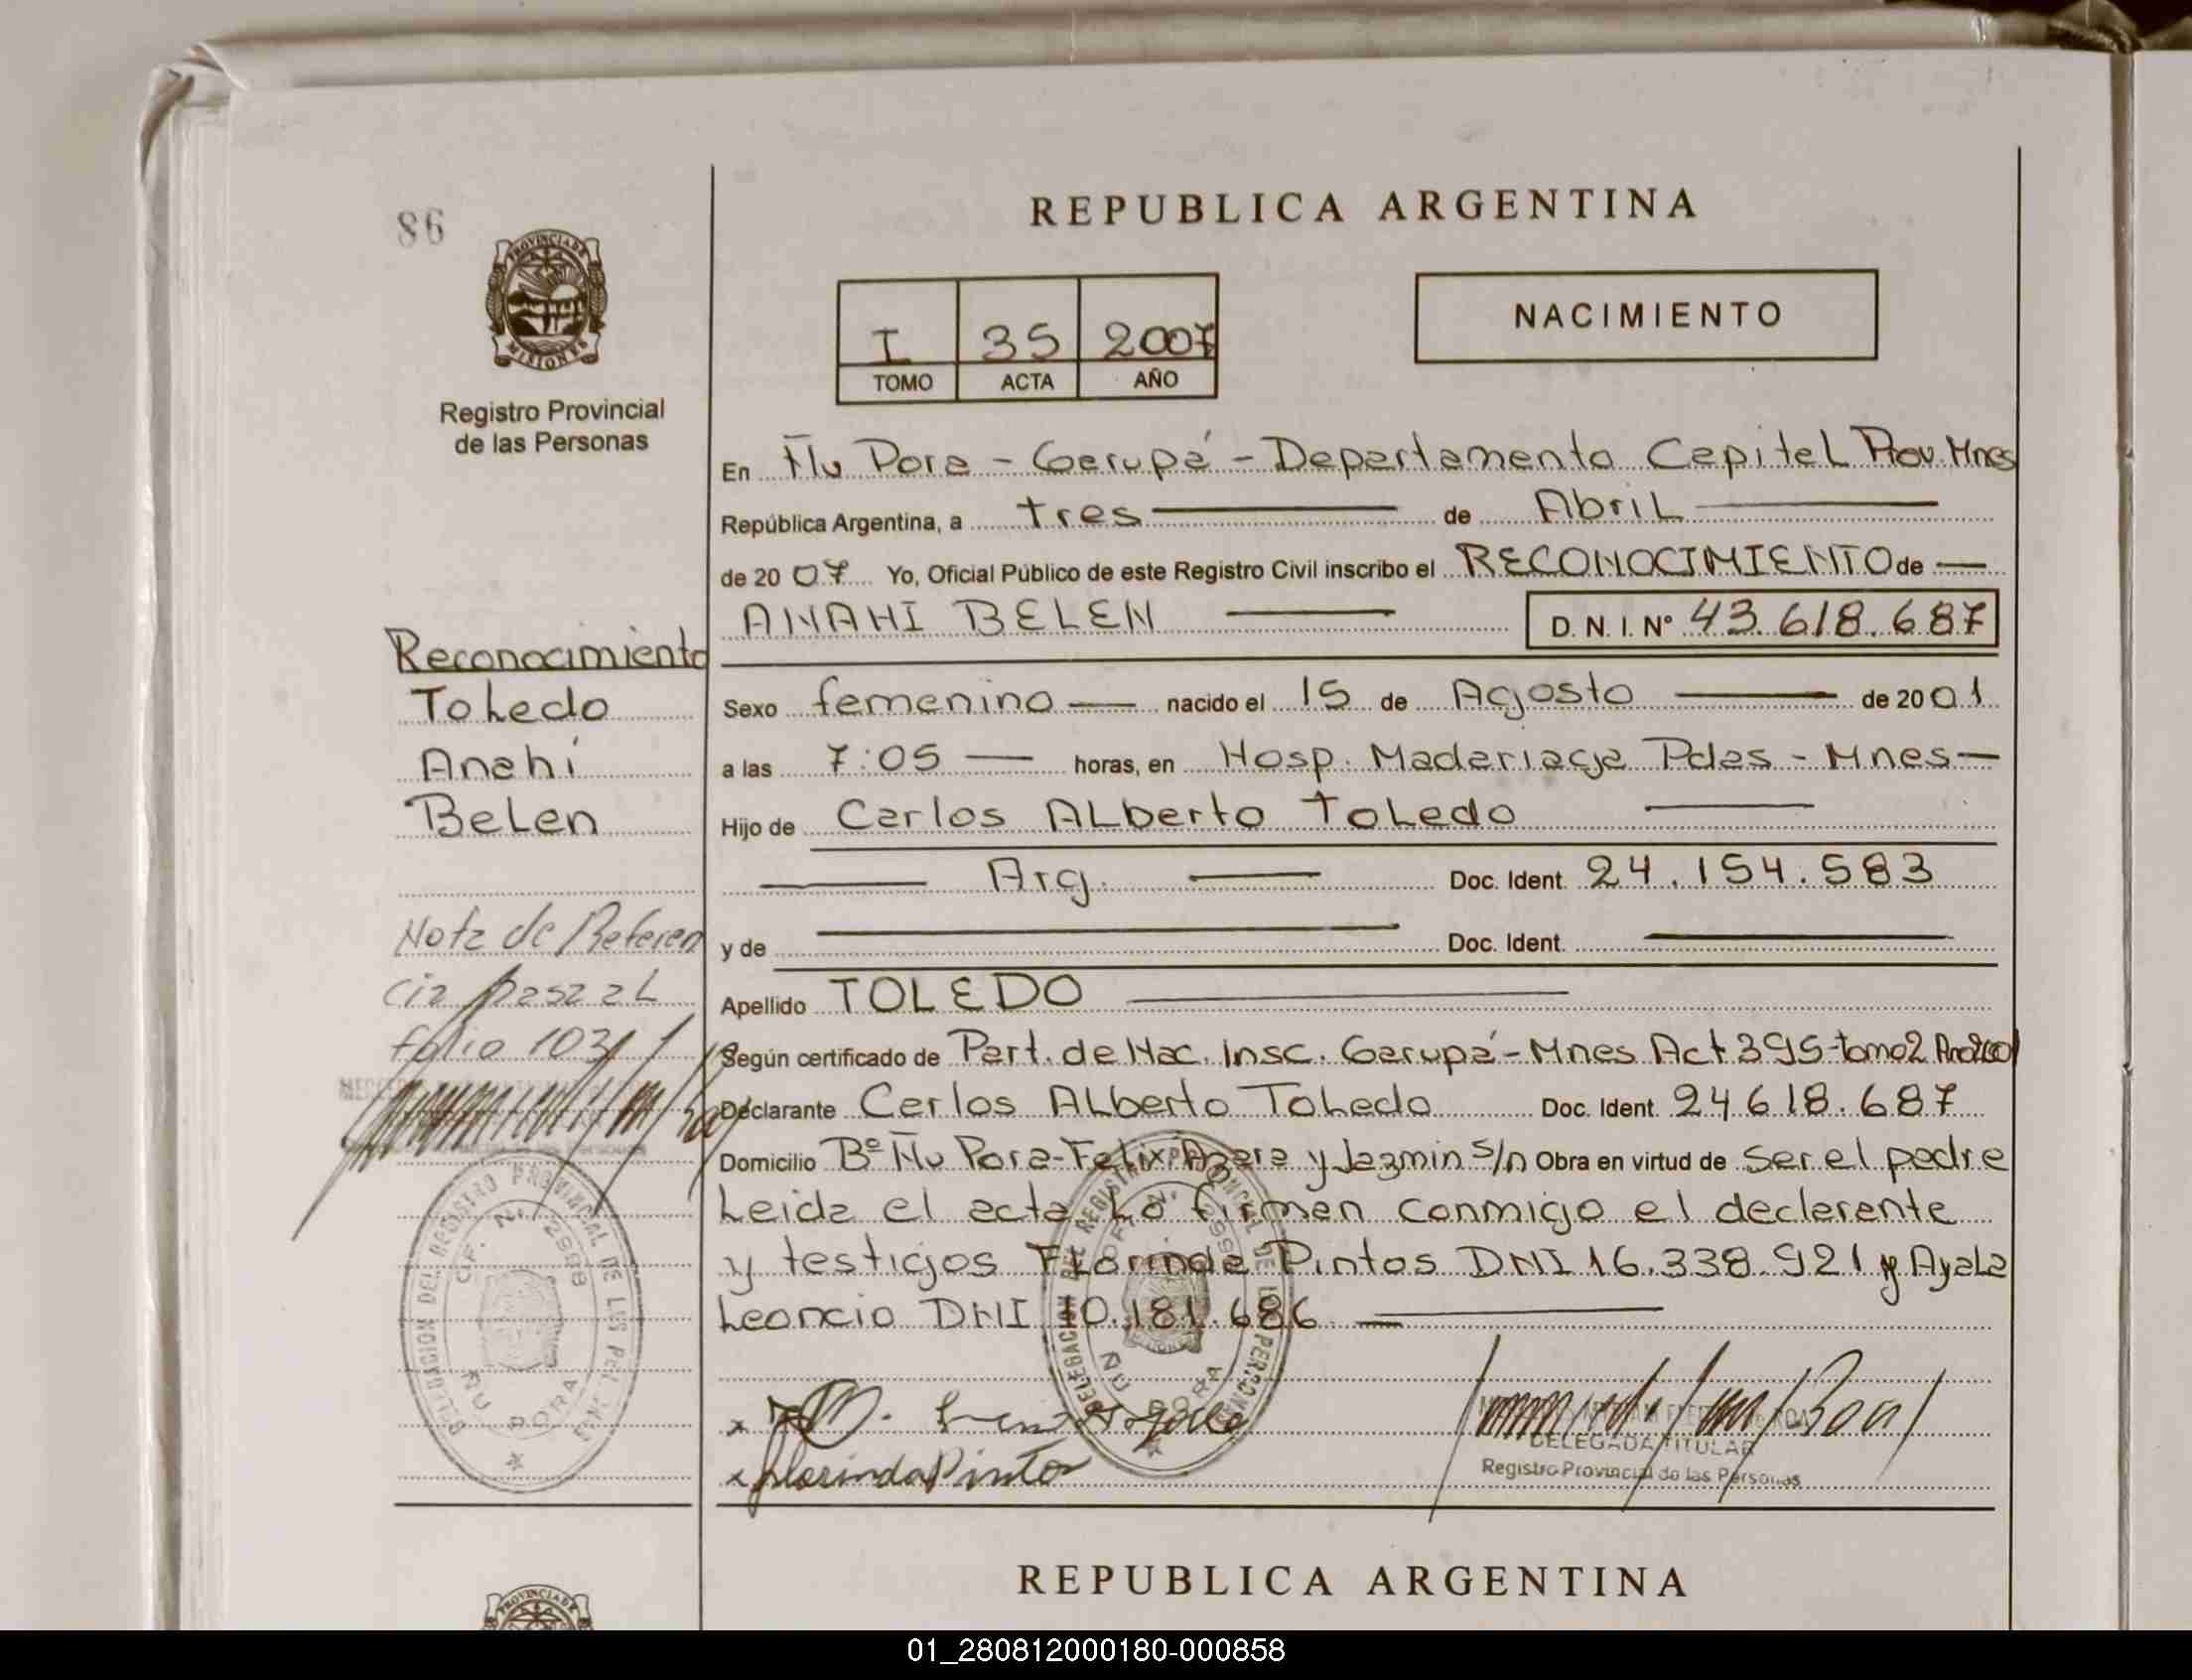 86
PROVINCIA DE
MISIONES
Registro Provincial
de las Personas
REPUBLICA ARGENTINA
I 35 2007
TOMO ACTA AÑO
NACIMIENTO
En Ñu Pora - Garupá - Departamento Capital Prov. Mnes
República Argentina, a tres de Abril
de 2007 Yo, Oficial Público de este Registro Civil inscribo el RECONOCIMIENTO de
ANAHI BELEN D. N. I. Nº 43.618.687
Sexo femenino nacido el 15 de Agosto de 2001
a las 7:05 horas, en Hosp. Madariaga Pdas - Mnes
Hijo de Carlos Alberto Toledo
Arg. Doc. Ident. 24.154.583
y de Doc. Ident.
Apellido TOLEDO
Según certificado de Part. de Nac. Insc. Garupá - Mnes Act 395 - tomo 2 Año 2001
Declarante Carlos Alberto Toledo Doc. Ident. 24618.687
Domicilio Bº Ñu Pora - Felix Azara y Jazmin s/n Obra en virtud de ser el padre
Leida el acta Lo firman conmigo el declarante
y testigos Florinda Pintos DNI 16.338.921 y Ayala
Leoncio DNI 10.181.686
Florinda Pintos
DELEGADA TITULAR
Registro Provincial de las Personas
Reconocimiento
Toledo
Anahi
Belen
Nota de Referen
cia pasa al
folio 103
DELEGACION DEL REGISTRO PROVINCIAL DE LAS PERSONAS
OF. N. 2998
ÑU PORA
DELEGACION DEL REGISTRO PROVINCIAL DE LAS PERSONAS
ÑU PORA
REPUBLICA ARGENTINA
PROVINCIA DE
01_280812000180-000858